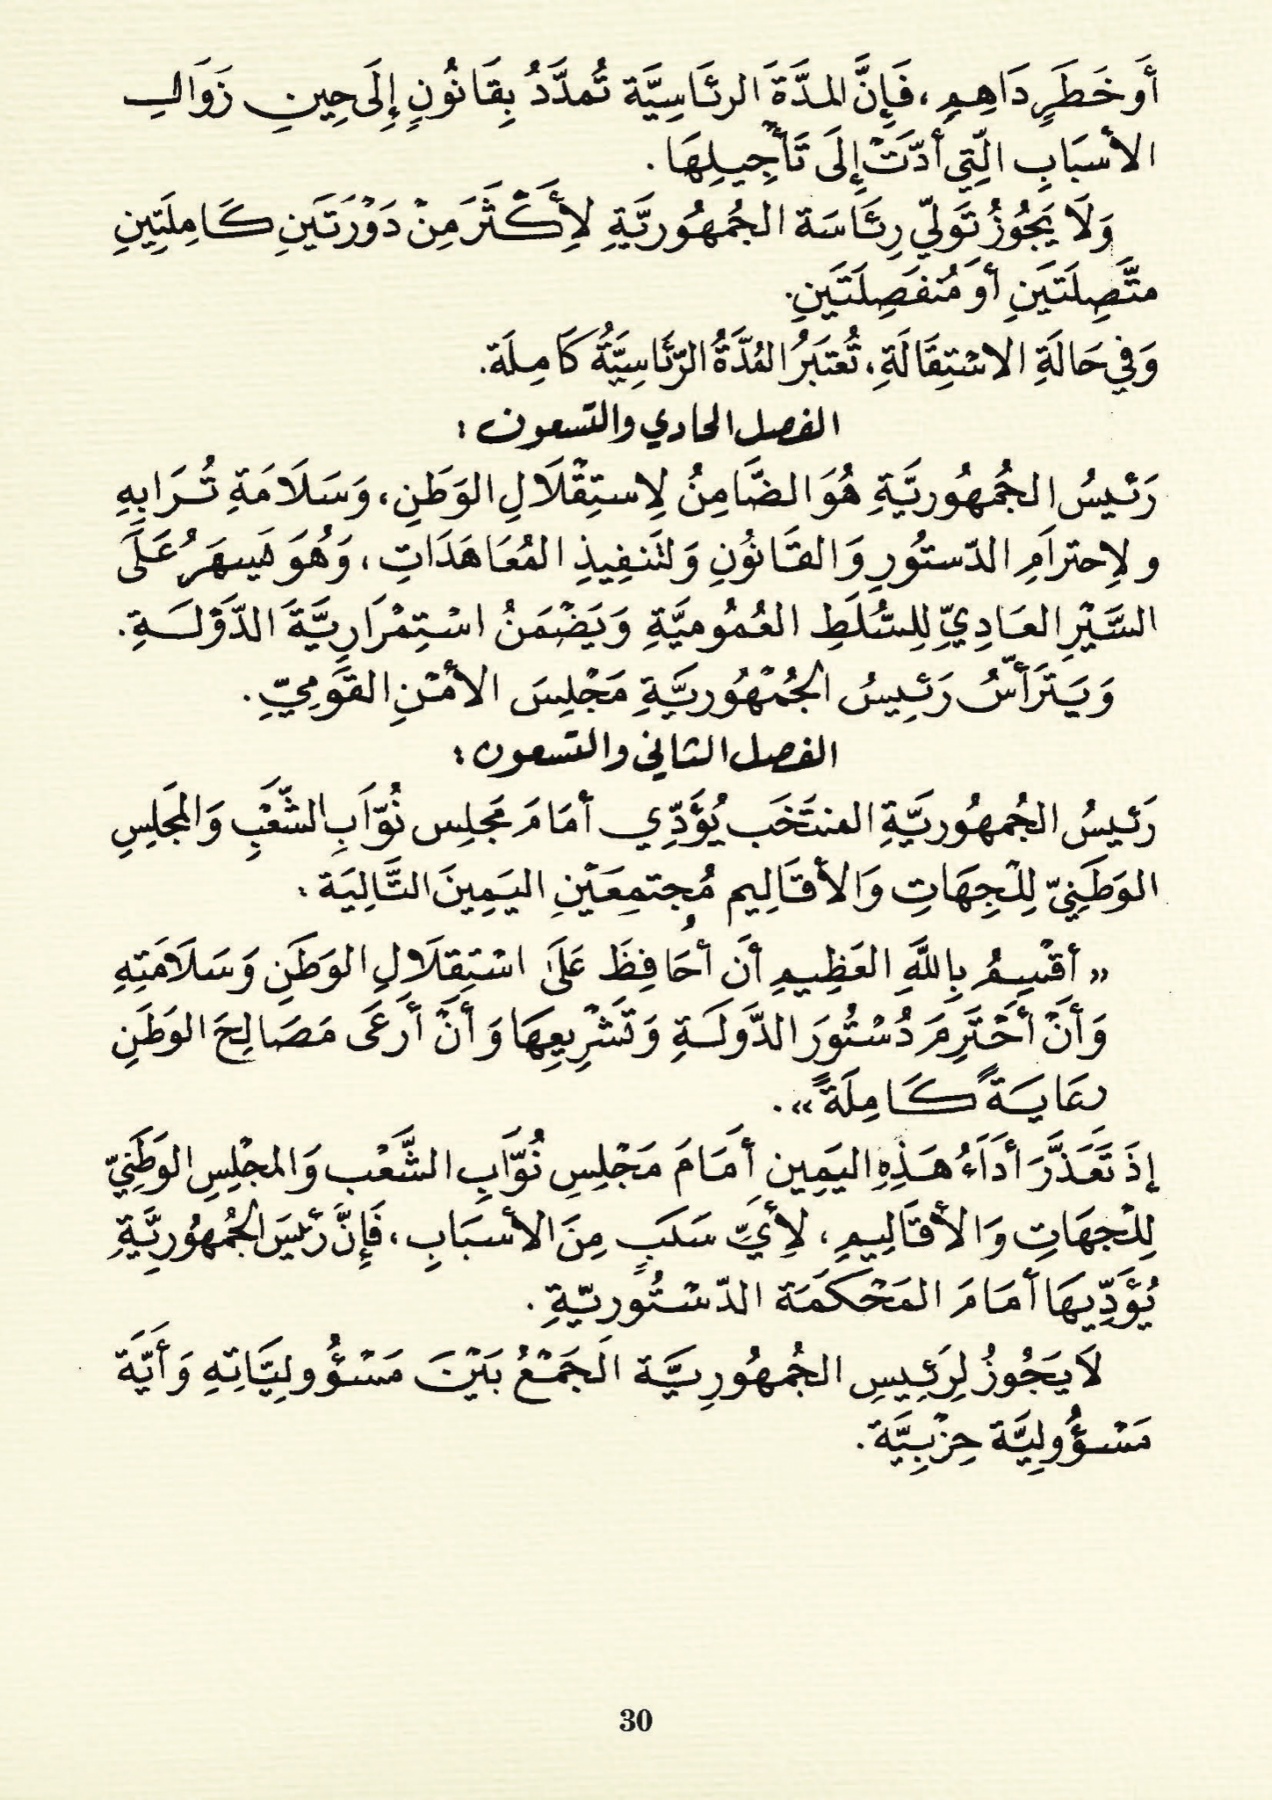 أَو خَطَرٍ دَاهِمٍ، فَإِنَّ المدَّةَ الرئَاسِيَّة تُمدَّدُ بِقَانُونٍ إِلَى حِينِ زَوَالِ
الأسبَابِ الّتِي أدّتْ إِلَى تَأْجِيلِهَا.
وَلَا يَجُوزُ تَولّي رِئَاسَة الجُمهُوريَّةِ لِأَكْثَرَ مِنْ دَوْرَتَينِ كَامِلَتَينِ
متَّصِلَتَينِ أو مُنفَصِلَتَينِ.
وَفِي حَالَةِ الاسْتِقَالَةِ، تُعتَبَرُ المُدَّةُ الرّئَاسِيَّةُ كَامِلَة.
الفصل الحادي والتسعون:
رَئيسُ الجُمهُوريَّةِ هُوَ الضَّامِنُ لِاستِقْلَالِ الوَطَنِ، وَسَلَامَةِ تُرَابِهِ
ولاِحترَامِ الدّستُورِ وَالقَانُونِ وَلتَنفِيذِ المُعَاهَدَاتِ، وَهُوَ يَسهَرُ عَلَى
السَّيْرِ العَادِيِّ لِلسُّلَطِ العُمُوميَّةِ وَيَضْمَنُ اسْتِمْرَارِيَّةَ الدَّوْلَةِ.
وَيَتَرَأّسُ رَئِيسُ الجُمْهُوريَّةِ مَجْلِسَ الأمْنِ القَومِيِّ.
الفصل الثاني والتسعون:
رَئيسُ الجُمهُوريَّةِ المنتَخَب يُؤَدِّي أمَامَ مَجلِس نُوّابِ الشّعْبِ وَالمَجلِسِ
الوَطَنِيّ لِلْجِهَاتِ وَالأقَالِيم مُجتمِعَيْنِ اليَمِينَ التَّالِيَة:
«أُقْسِمُ بِاللَّهِ العَظِيمِ أنَ أحَافِظَ عَلَى اسْتِقلَالِ الوَطَنِ وَسَلَامَتِهِ
وَأنْ أحْتَرِمَ دُسْتُورَ الدَّولَةِ وَتَشْرِيعِهَا وَأنْ أَرعَى مَصَالِحَ الوَطَنِ
رعَايَةً كَامِلَةً».
إذَ تَعَذَّرَ أدَاءُ هَذِهِ اليَمِينِ أَمَامَ مَجْلِسِ نُوَّابِ الشَّعْب وَالمجْلِسِ الوطَنِيّ
لِلْجهَاتِ وَالأقَالِيمِ، لِأيِّ سَبَبٍ مِنَ الأسبَابِ، فَإِنَّ رَئيسَ الجُمهُوريَّةِ
يُؤَدِّيهَا أمَامَ المَحْكَمَة الدّسْتُوريّةِ.
لَا يَجُوزُ لِرَئِيسِ الجُمهُورِيَّة الَجَمْعُ بَيْنَ مَسْؤُولِيَّاتِهِ وَأَيَّة
مَسْؤُولِيَّة حِزْبِيَّة.
30